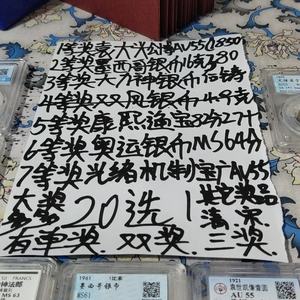 1等奖袁大头公博AU55 1850
2等奖墨西哥银币
3等奖大力神银币后铸
4等奖双凤银币49克
5等奖康熙通宝82分27寸
6等奖奥运银币MS64分
7等奖光绪机制宝广AU55
大奖多多
20选1
其它奖品清沢
有单奖.双奖.三奖
神法郎
MS 63
1961
墨西哥银币
MS61
1921
AU 55